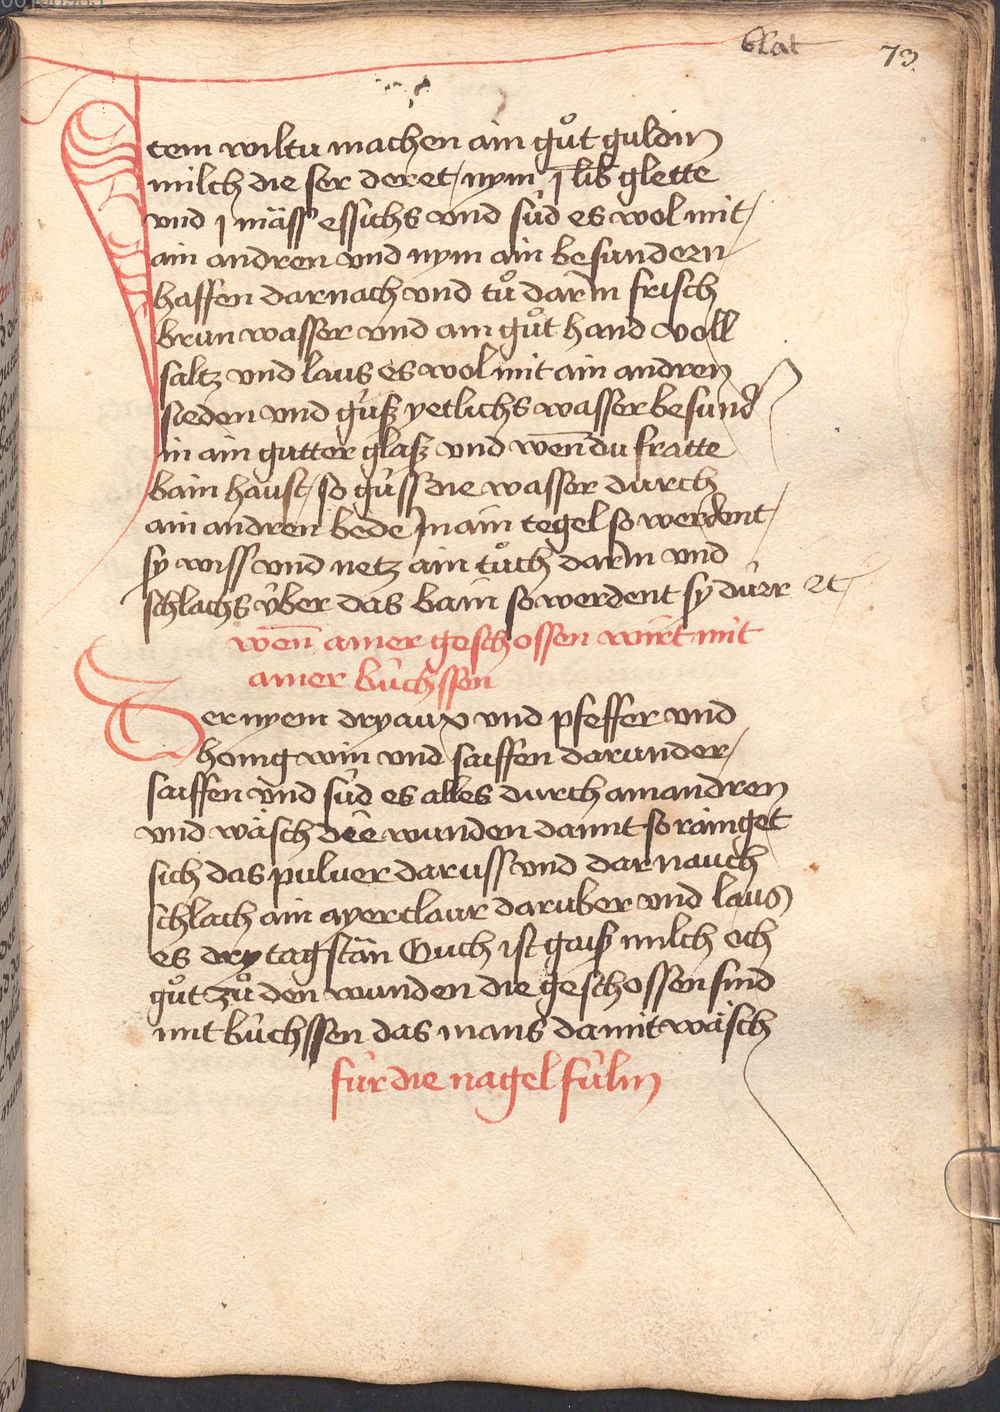 blat 73
Item wiltu machen ain gůt guldin
milch die ser deret / nym j lib glette
vnd j mäss essichs vnd sùd es wol mit /
ain andren vnd nym ain besundern
haffen darnach vnd tů darin frisch
brun wasser vnd ain gůt hand voll
saltz vnd laus es wol mit ain andren
sieden vnd gùß yetlichs wasser besund
in ain gutter glaß vnd wen̄ du fratte
bain häust / so gùss die wasser durch
ain andren bede in ain tegel so werdent /
sy wiss vnd netz ain tůch darin vnd
schlachs ùber das bain so werdent sy dùrr etc
wen̄ ainer geschossen wirt mit
ainer bùchssen
Der nyem dryaux vnd pfeffer vnd
honig win vnd saiffen darunder /
saiffen vnd sùd es alles durch ainandren
vnd wäsch die wunden damit so rainget
sich das puluer daruss vnd darnauch
schlach ain ayerclaur daruber vnd laus
es dry tag stän Ouch ist gaiß milch och
gůt zů den wunden die geschossen sind
mit bùchssen das mans damit wäsch
fùr die nagel fùlin